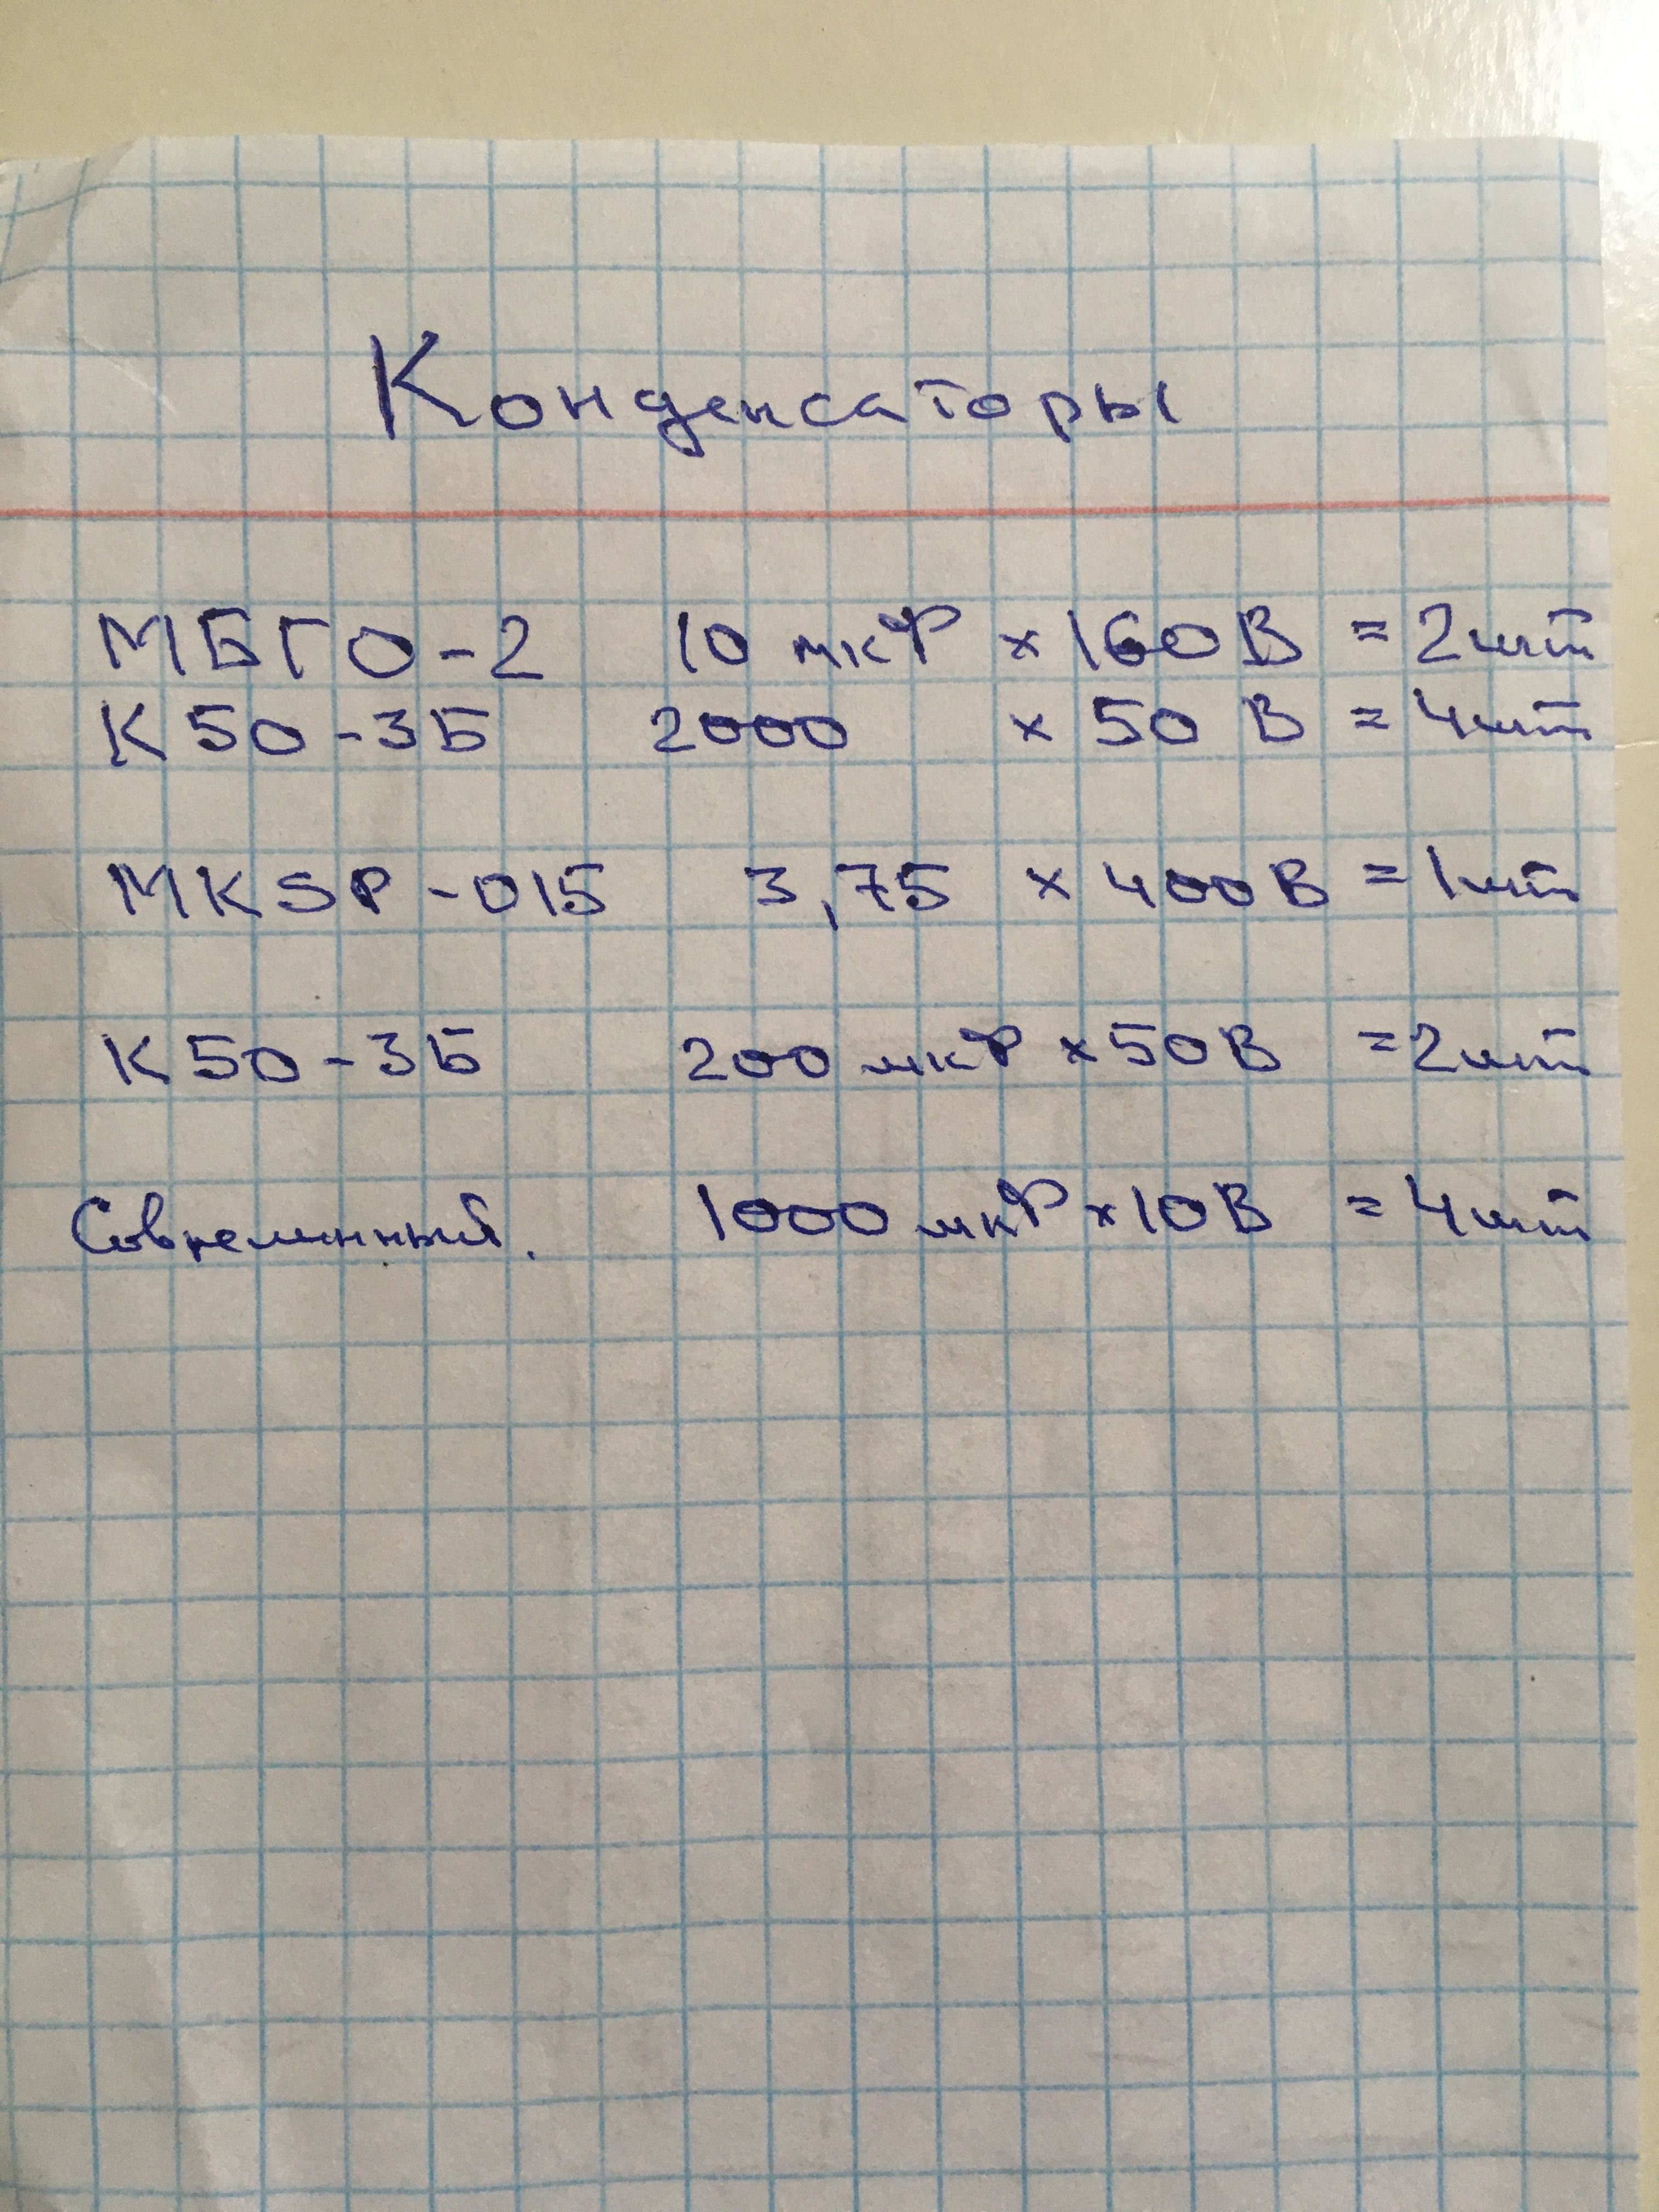 Конденсаторы
МБГО-2 10 мкФ × 160 В = 2шт
К50-3Б 2000 × 50 В = 4шт
MKSP-015 3,75 × 400 В = 1шт
К50-3Б 200 мкФ × 50 В = 2шт
Совреминный. 1000 мкФ × 10 В = 4шт